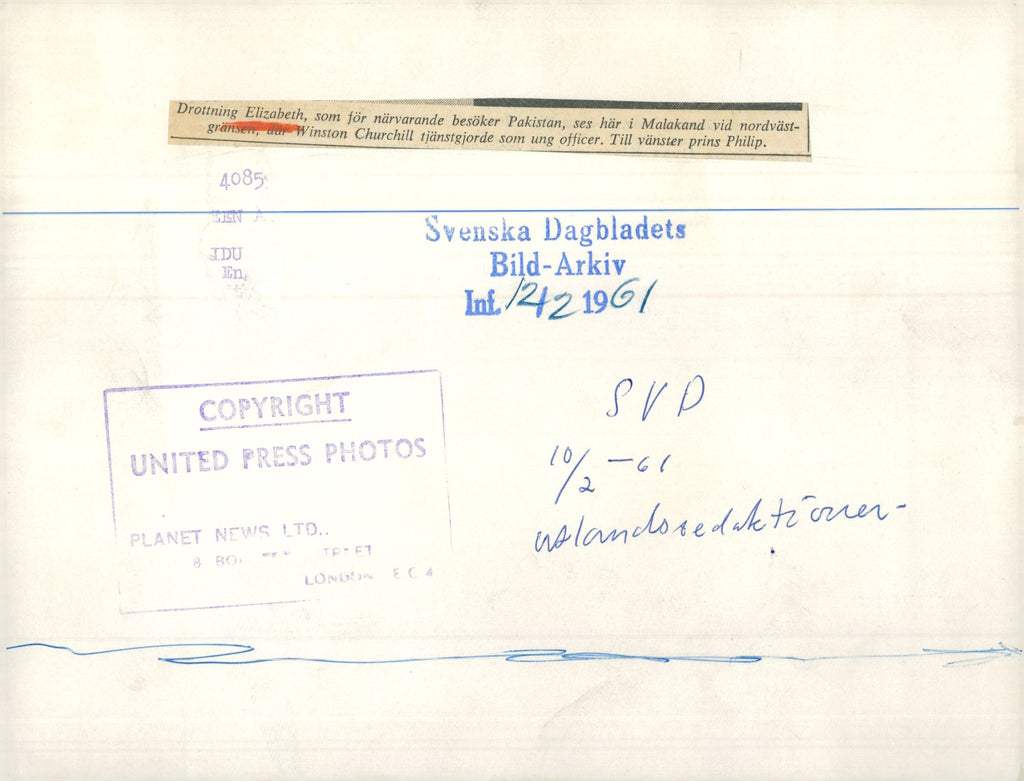 Drottning Elizabeth, som för närvarande besöker Pakistan, ses här i Malakand vid nordväst-
gränsen, där Winston Churchill tjänstgjorde som ung officer. Till vänster prins Philip.
4085
EEN A
IDU
En,
Svenska Dagbladets
Bild-Arkiv
Inf. 12/2 1961
COPYRIGHT
UNITED PRESS PHOTOS
PLANET NEWS LTD..
8
LONDON E C 4
SVD
10/2 - 61
utlandsredaktionen